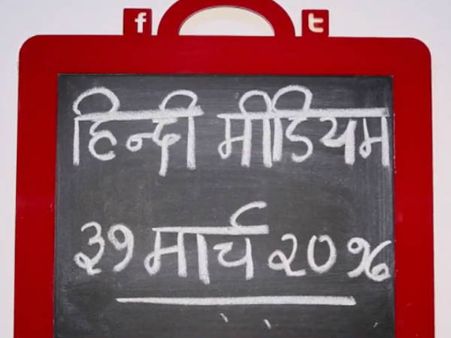 हिन्दी मीडियम
३१ मार्च २०१७